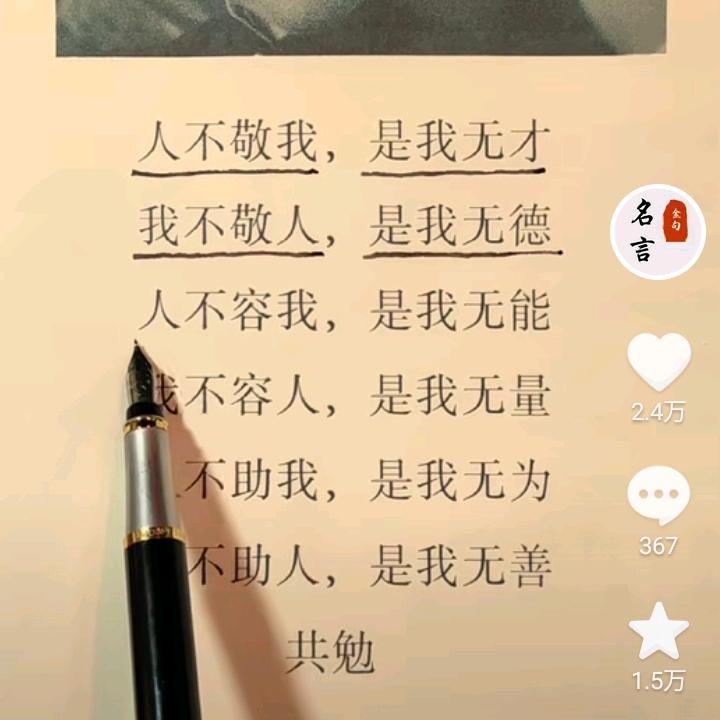 人不敬我，是我无才
我不敬人，是我无德
人不容我，是我无能
我不容人，是我无量
不助我，是我无为
不助人，是我无善
共勉
名言
金句
2.4万
367
1.5万